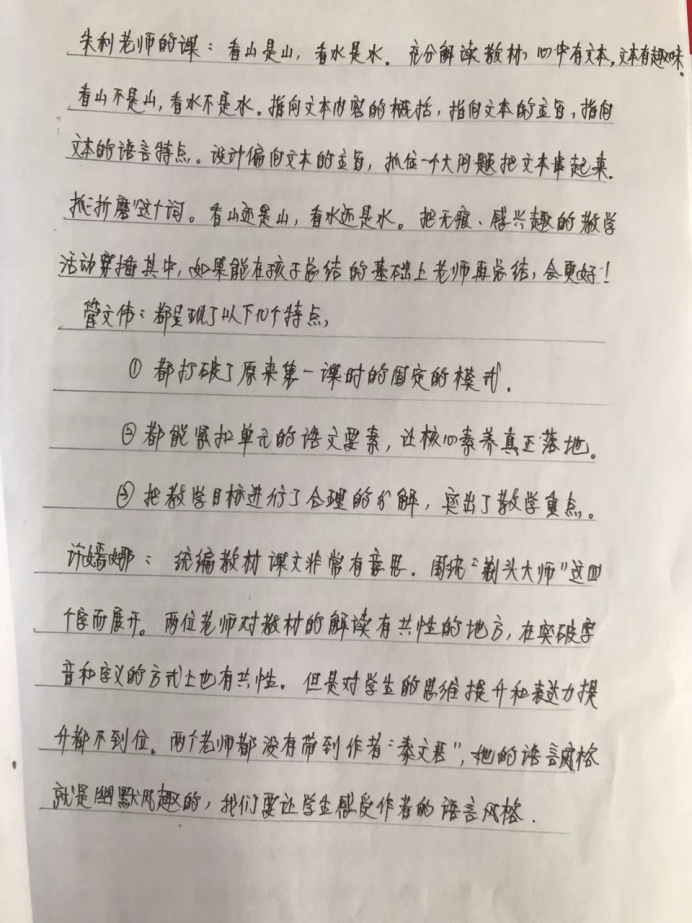 朱利老师的课：看山是山，看水是水。充分解读教材，心中有文本，文本有趣味。
看山不是山，看水不是水。指向文本内容的概括，指向文本的主旨，指向
文本的语言特点。设计偏向文本的主旨，抓住一个大问题把文本串起来。
抓“折磨”这个词。看山还是山，看水还是水。把无痕、感兴趣的教学
活动穿插其中，如果能在孩子总结的基础上老师再总结，会更好！
管文伟：都呈现了以下几个特点，
①都打破了原来第一课时的固定的模式．
②都能紧扣单元的语文要素，让核心素养真正落地。
③把教学目标进行了合理的分解，突出了教学重点。
许嫣娜：统编教材课文非常有意思．围绕“剃头大师”这四
个字而展开。两位老师对教材的解读有共性的地方，在突破字
音和字义的方式上也有共性。但是对学生的思维提升和表达力提
升都不到位。两个老师都没有带到作者“秦文君”，她的语言风格
就是幽默风趣的，我们要让学生感受作者的语言风格．